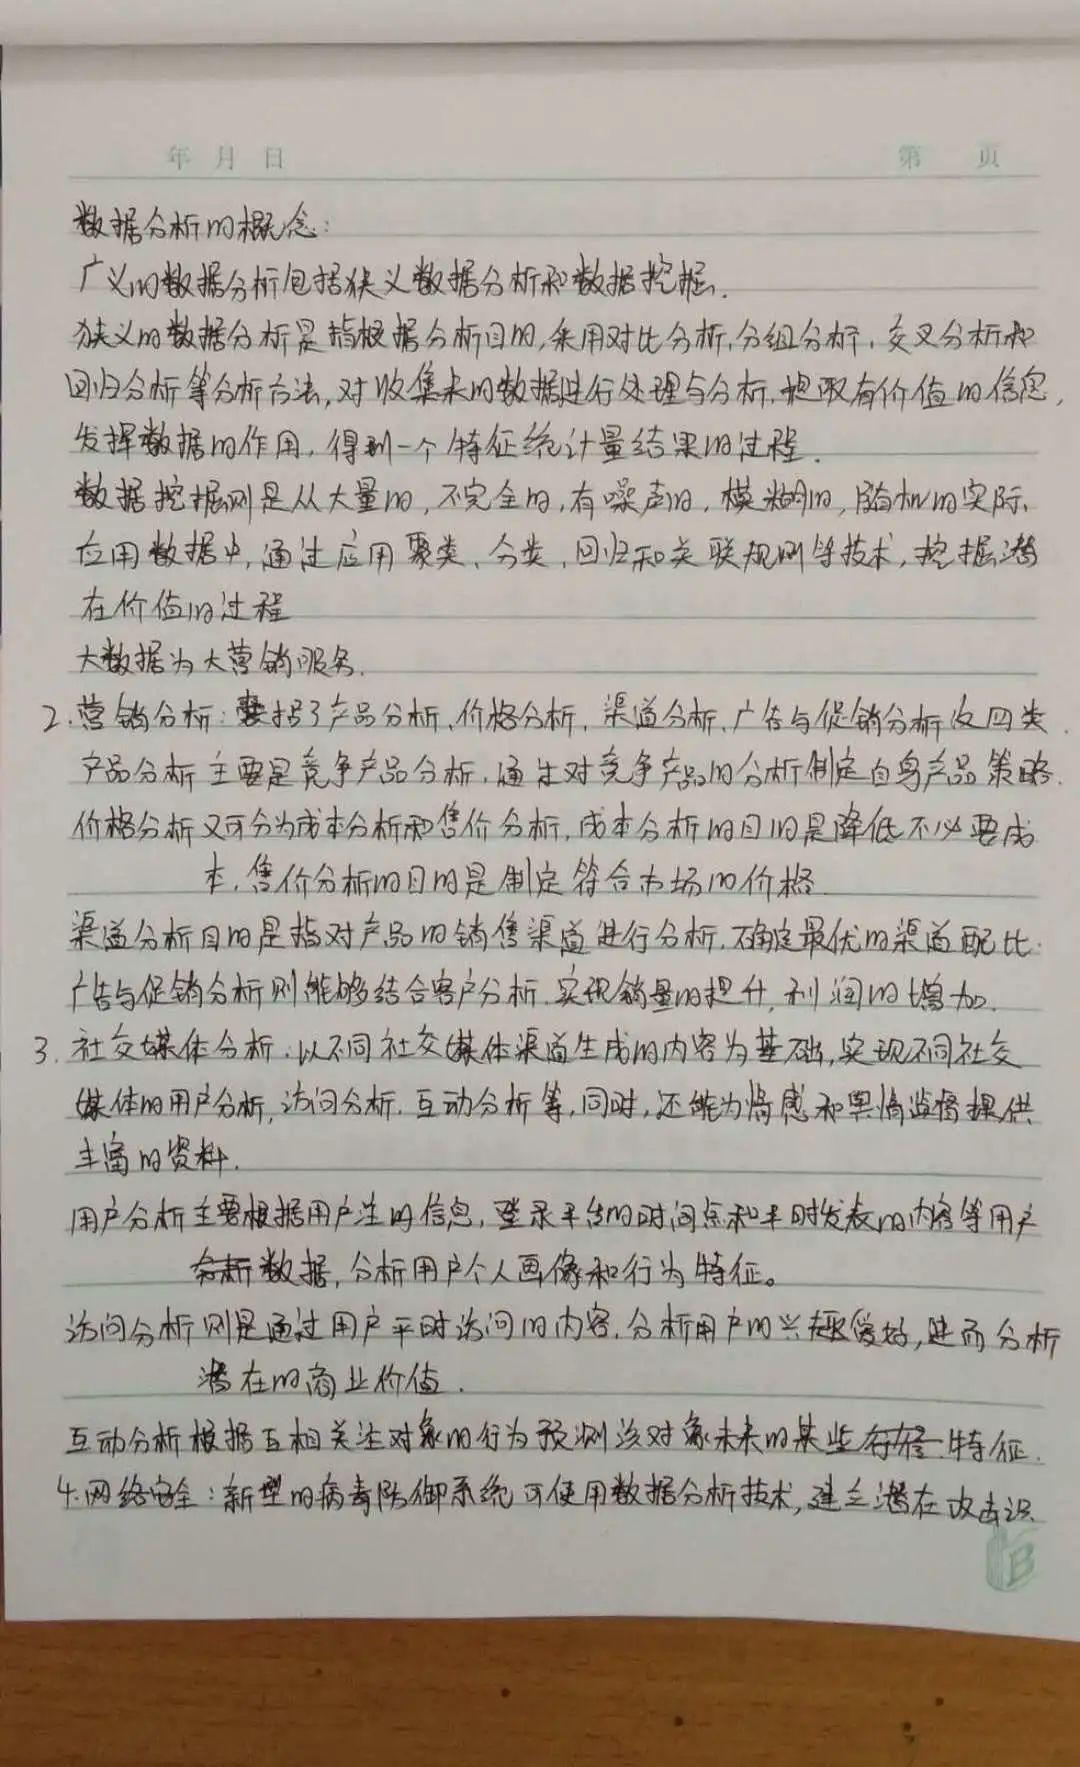 年 月 日 第 页
数据分析的概念:
广义的数据分析包括狭义数据分析和数据挖掘.
狭义的数据分析是指根据分析目的,采用对比分析,分组分析,交叉分析和
回归分析等分析方法,对收集来的数据进行处理与分析,提取有价值的信息,
发挥数据的作用,得到一个特征统计量结果的过程.
数据挖掘则是从大量的,不完全的,有噪声的,模糊的,随机的实际
应用数据中,通过应用聚类、分类、回归和关联规则等技术,挖掘潜
在价值的过程
大数据为大营销服务.
2.营销分析:囊括了产品分析,价格分析,渠道分析,广告与促销分析这四类.
产品分析主要是竞争产品分析,通过对竞争产品的分析制定自身产品策略.
价格分析又可分为成本分析和售价分析,成本分析的目的是降低不必要成
本,售价分析的目的是制定符合市场的价格.
渠道分析目的是指对产品的销售渠道进行分析,确定最优的渠道配比.
广告与促销分析则能够结合客户分析,实现销量的提升,利润的增加.
3.社交媒体分析:以不同社交媒体渠道生成的内容为基础,实现不同社交
媒体的用户分析,访问分析,互动分析等,同时,还能为情感和舆情监督提供
丰富的资料.
用户分析主要根据用户注的信息,登录平台的时间点和平时发表的内容等用户
数据,分析用户个人画像和行为特征。
访问分析则是通过用户平时访问的内容,分析用户的兴趣爱好,进而分析
潜在的商业价值.
互动分析根据互相关注对象的行为预测该对象未来的某些特征.
4.网络安全:新型的病毒防御系统可使用数据分析技术,建立潜在攻击识
B